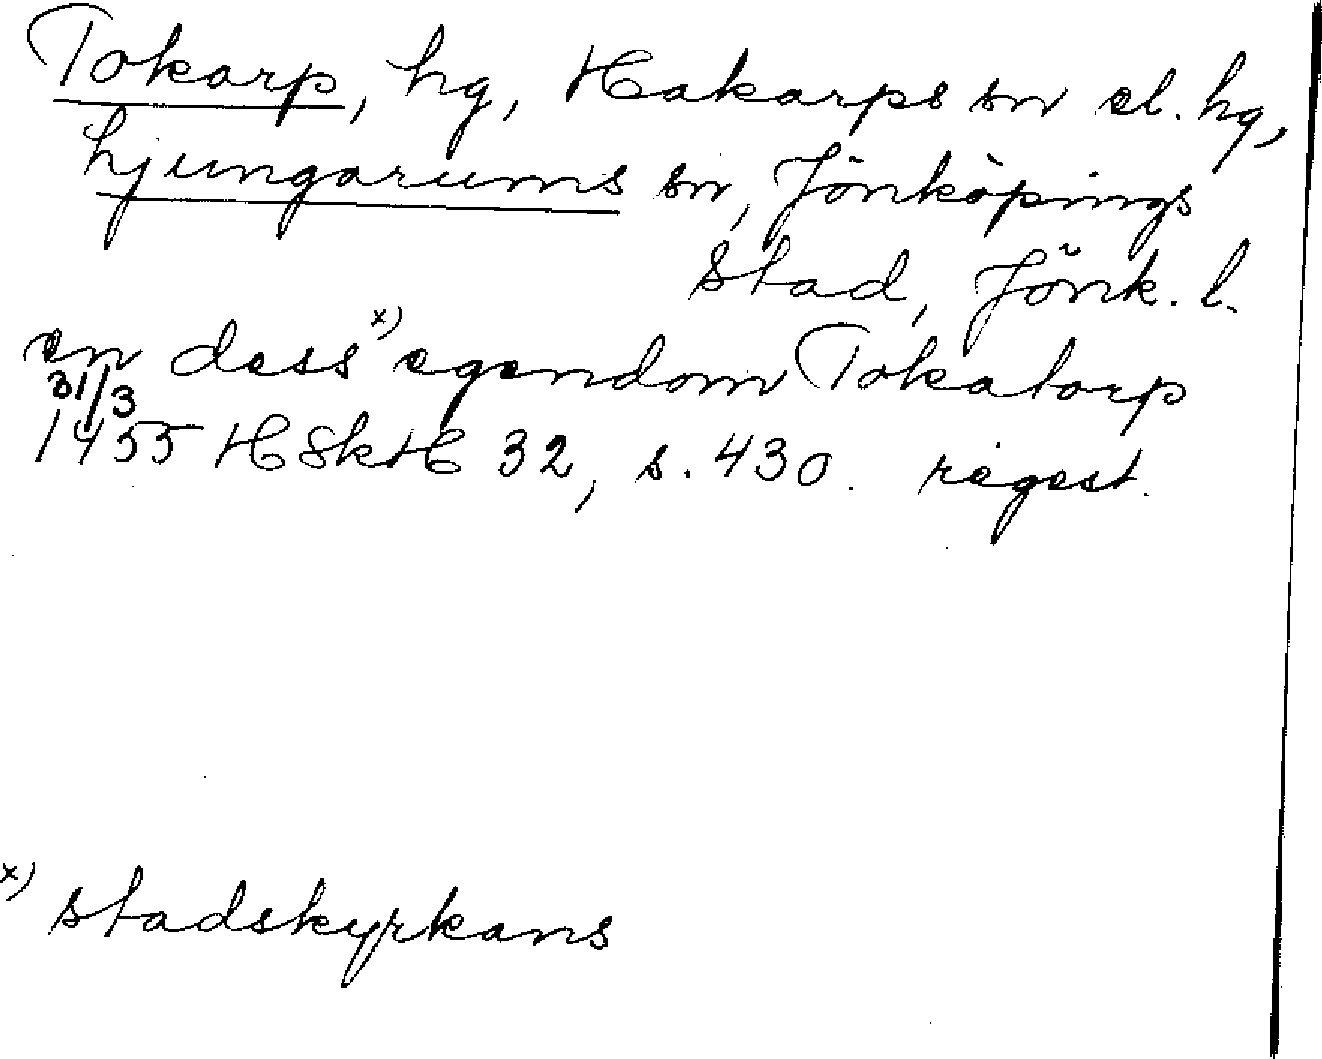 Tokarp, hg, Hakarps sn el. hg,
Ljungarums sn, Jönköpings
stad, Jönk. l.
en dess x) egendom Tokatorp
31/3
1455 HSkH 32, s. 430. regest.
x) stadskyrkans